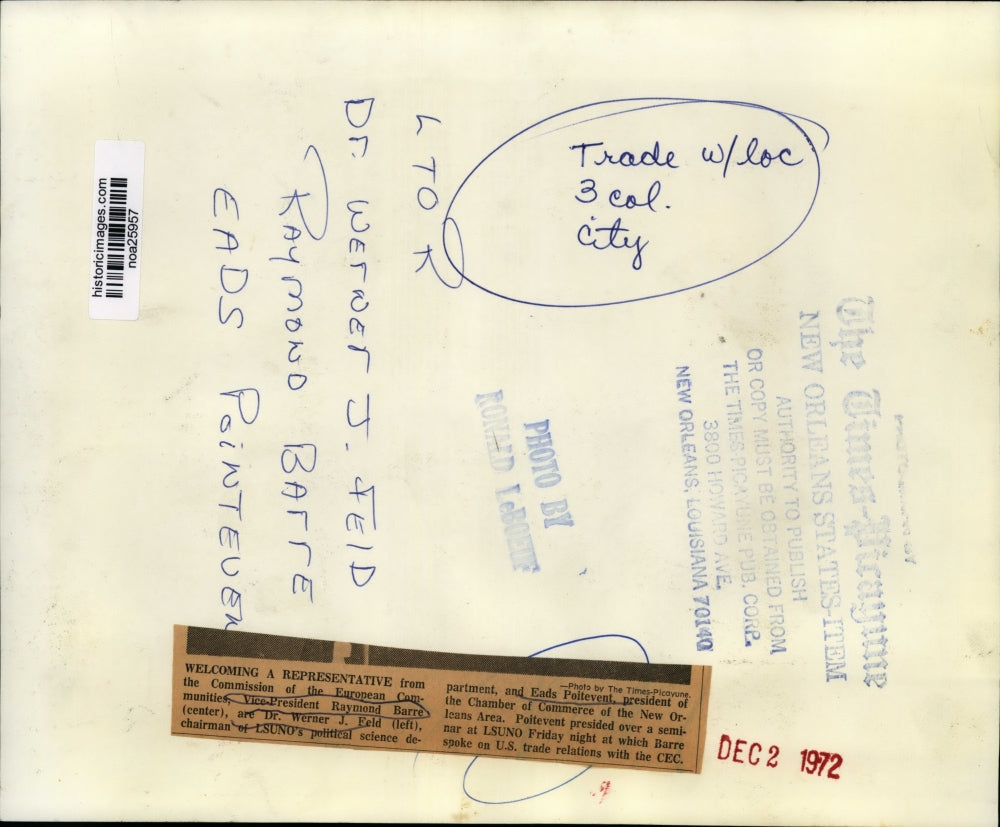 Trade w/loc
3 col.
City
L TO R
Dr. WERNER J. FEID
RAYMOND BARRE
EADS POINTEVEN
historicimages.com
noa25957
The Times-Picayune
NEW ORLEANS STATES-ITEM
AUTHORITY TO PUBLISH
OR COPY MUST BE OBTAINED FROM
THE TIMES PICAYUNE PUB. CORP.
3800 HOWARD AVE.
NEW ORLEANS, LOUISIANA 70140
PHOTO BY
RONALD LeBOEUF
WELCOMING A REPRESENTATIVE from
the Commission of the European Com-
munities, Vice-President Raymond Barre
(center), are Dr. Werner J. Feld (left),
chairman of LSUNO's political science de-
—Photo by The Times-Picayune.
partment, and Eads Poitevent, president of
the Chamber of Commerce of the New Or-
leans Area. Poitevent presided over a semi-
nar at LSUNO Friday night at which Barre
spoke on U.S. trade relations with the CEC.
DEC 2 1972